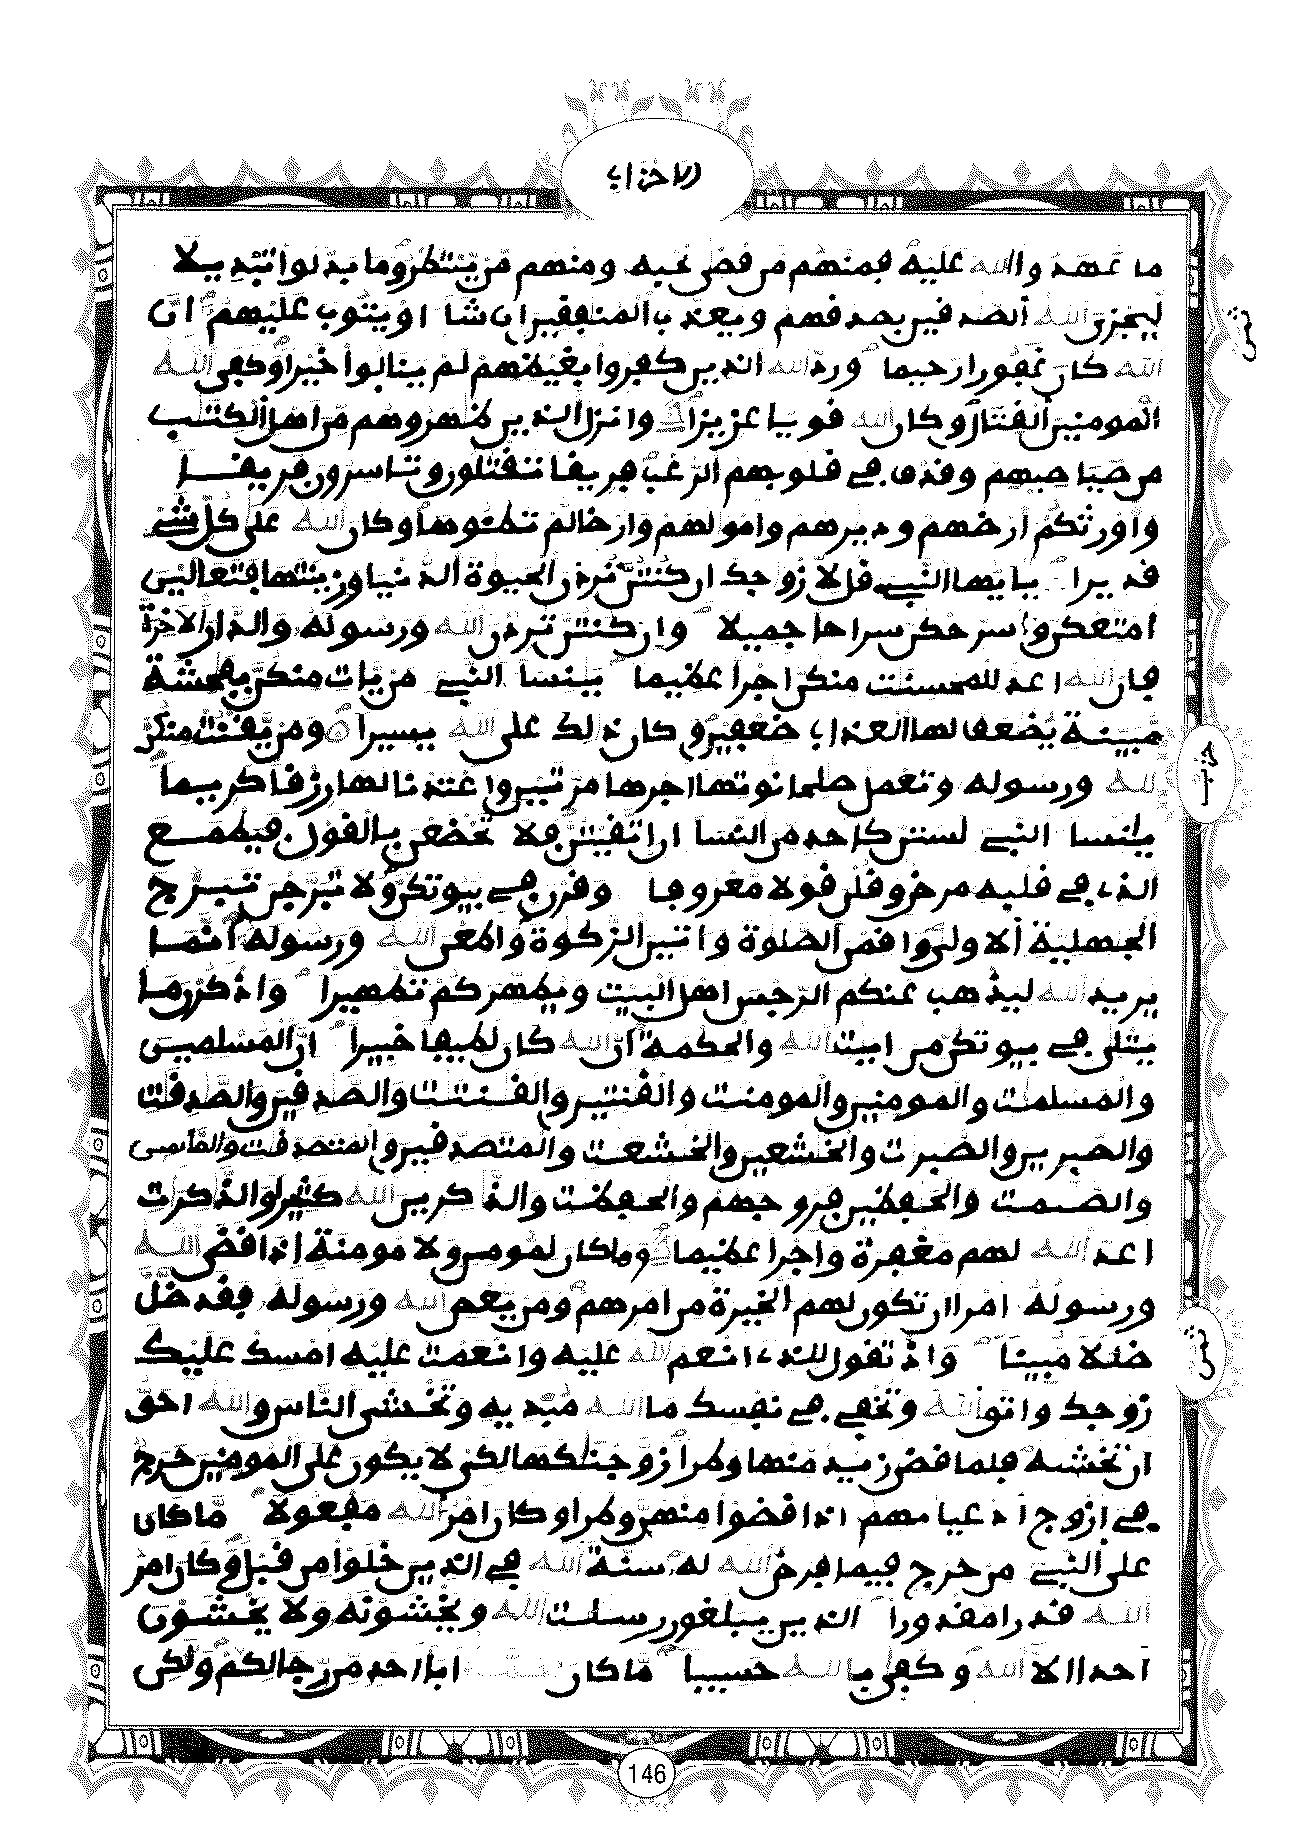 الاحزاب
ما عهدوا الله عليه فمنهم من قضى نحبه ومنهم من ينتظر وما بدلوا تبديلا
ليجزى الله الصدفين بصدقهم ويعذب المنفقين ان شا او يتوب عليهم ان
الله كان غفورا رحيما ورد الله الذين كفروا بغيظهم لم ينالوا خيرا وكفى الله
المومنين القتال وكان الله قويا عزيزا وانزل الذين ظهروهم من اهل الكتب
من صياصيهم وقذف في قلوبهم الرعب فريقا تقتلون وتاسرون فريقا
واورثكم ارضهم وديرهم وامولهم وارضا لم تطئوها وكان الله على كل شيء
قديرا يايها النبيء قل لازوجك ان كنتن تردن الحيوة الدنيا وزينتها فتعالين
امتعكن واسرحكن سراحا جميلا وان كنتن تردن الله ورسوله والدار الاخرة
فان الله اعد للمحسنت منكن اجرا عظيما ينسا النبيء من يات منكن بفحشة
مبينة يضعف لها العذاب ضعفين وكان ذلك على الله يسيرا ومن يقنت منكن
لله ورسوله وتعمل صلحا نوتها اجرها مرتين واعتدنا لها رزقا كريما
ينسا النبيء لستن كاحد من النسا ان اتقيتن فلا تخضعن بالقول فيطمع
الذي في قلبه مرض وقلن قولا معروفا وقرن في بيوتكن ولا تبرجن تبرج
الجهلية الاولى واقمن الصلوة واتين الزكوة واطعن الله ورسوله انما
يريد الله ليذهب عنكم الرجس اهل البيت ويطهركم تطهيرا واذكرن ما
يتلى في بيوتكن من ايت الله والحكمة ان الله كان لطيفا خبيرا ان المسلمين
والمسلمت والمومنين والمومنت والقنتين والقنتت والصدقين والصدقت
والصبرين والصبرت والخشعين والخشعت والمتصدقين والمتصدقت والصئمين
والصئمت والحفظين فروجهم والحفظت والذكرين الله كثيرا والذكرت
اعد الله لهم مغفرة واجرا عظيما وما كان لمومن ولا مومنة اذا قضى الله
ورسوله امرا ان تكون لهم الخيرة من امرهم ومن يعص الله ورسوله فقد ضل
ضللا مبينا واذ تقول للذي انعم الله عليه وانعمت عليه امسك عليك
زوجك واتق الله وتخفي في نفسك ما الله مبديه وتخشى الناس والله احق
ان تخشه فلما قضى زيد منها وطرا زوجنكها لكي لا يكون على المومنين حرج
في ازوج ادعيائهم اذا قضوا منهن وطرا وكان امر الله مفعولا ما كان
على النبيء من حرج فيما فرض الله له سنة الله في الذين خلوا من قبل وكان امر
الله قدرا مقدورا الذين يبلغون رسلت الله ويخشونه ولا يخشون
احدا الا الله وكفى بالله حسيبا ما كان محمد ابا احد من رجالكم ولكن
ثمن
حزب
ثمن
146